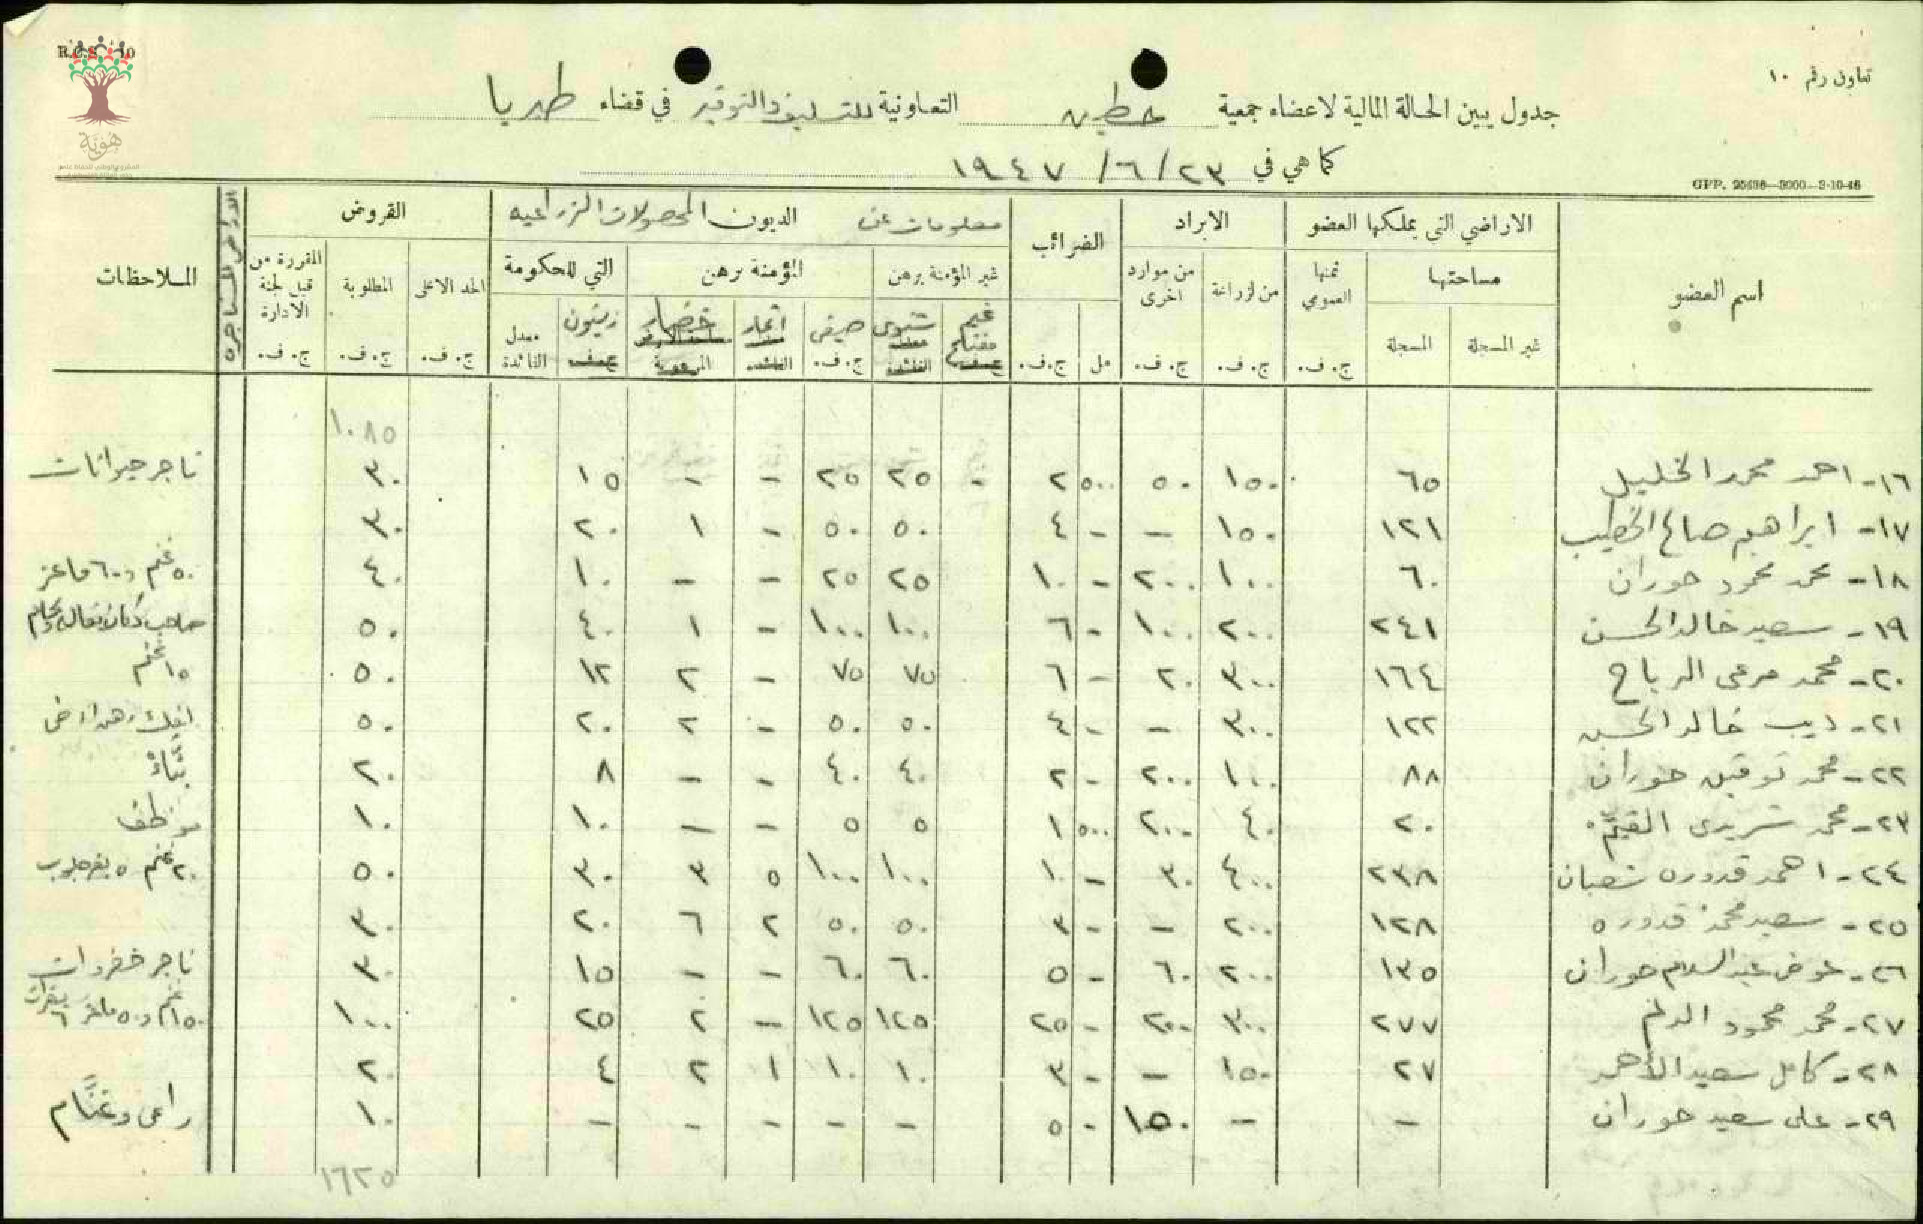 R.C.S. 10
هَوِيَّة
تعاون رقم ١٠
جدول يبين الحالة المالية لاعضاء جمعية حطين التعاونية للتسليف والتوفير في قضاء طبريا
كما هي في ٢٣ / ٦ / ١٩٤٧
GPP. 25436—3000—3-10-46
اسم العضو
الاراضي التي يملكها العضو
مساحتها
غير المسجلة
المسجلة
ثمنها العمومي
ج. ف.
الايراد
من الزراعة
ج. ف.
من موارد اخرى
ج. ف.
الضرائب
مل
ج. ف.
معلومات عن الديون المحصولات الزراعيه
غير المؤمنة برهن
المؤمنة برهن
التي للحكومة
غير مفتلح
ج. ف.
شتوي
معدل
الفائدة
صيفي
ج. ف.
اثمار
معدل
الفائدة
خضار
مساحة الارض
المرهونة
زيتون
ج. ف.
معدل
الفائدة
القروض
الحد الاعلى
ج. ف.
المطلوبة
ج. ف.
المقررة من قبل لجنة الادارة
ج. ف.
الاراضي المستأجره
الملاحظات
١٠٨٥
١٦- احمد محمد الخليل ٦٥ ١٥٠ ٥٠ ٥٠٠ ٢ - ٢٥ ٢٥ - - ١٥ ٣٠ تاجر حيوانات
١٧- ابراهيم صالح الخطيب ١٢١ ١٥٠ - - ٤ ٥٠ ٥٠ - ١ ٢٠ ٣٠
١٨- محمد محمود حوران ٦٠ ١٠٠ ٢٠٠ - ١٠ ٢٥ ٢٥ - - ١٠ ٤٠ ٥٠ غنم و ٦٠ ماعز
١٩- سعيد خالد الحسن ٢٤١ ٢٠٠ ١٠٠ - ٦ ١٠٠ ١٠٠ - ١ ٤٠ ٥٠ صاحب دكان بقاله ولحام
٢٠- محمد مرعي الرباح ١٦٤ ٣٠٠ ٢٠ - ٦ ٧٥ ٧٥ - ٢ ١٢ ٥٠ ١٥ غنم
٢١- ديب خالد الحسن ١٢٢ ٣٠٠ - - ٤ ٥٠ ٥٠ - ٢ ٢٠ ٥٠ رهن اراضي
٢٢- محمد توفيق حوران ٨٨ ١٠٠ ٢٠٠ - ٢ ٤٠ ٤٠ - - ٨ ٢٠ بنّاء
٢٣- محمد القيّم ٢٠ ٤٠ ٢٠٠ ٥٠٠ ١ ٥ ٥ - - ١٠ ١٠ موظف
٢٤- احمد قدوره شعبان ٢٣٨ ٤٠٠ ٣٠ - ١٠ ١٠٠ ١٠٠ ٥ ٣ ٣٠ ٥٠ ٢٠ غنم ٥ بقر حلوب
٢٥- سعيد محمد قدوره ١٢٨ ٢٠٠ - - ٣ ٥٠ ٥٠ ٢ ٦ ٢٠ ٣٠
٢٦- عوض عبد السلام حوران ١٣٥ ٢٠٠ ٦٠ - ٥ ٦٠ ٦٠ - - ١٥ ٣٠ تاجر خضروات
٢٧- محمد محمود ٢٧٧ ٣٠٠ ٢٠٠ - ٢٥ ١٢٥ ١٢٥ - ٢ ٢٥ ١٠٠ ١٥٠ غنم و ٥٠ ماعز ٦ بقرات
٢٨- كامل سعيد الأحمد ٢٧ ١٥٠ - - ٣ ١٠ ١٠ ١ ٢ ٤ ٢٠
٢٩- علي سعيد حوران - - ١٥٠ - ٥ - - - - - ١٠ راعي وغنّام
١٦٢٥